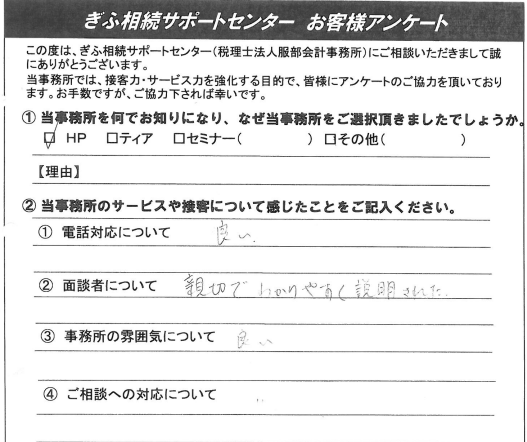 ぎふ相続サポートセンター お客様アンケート
この度は、ぎふ相続サポートセンター(税理士法人服部会計事務所)にご相談いただきまして誠
にありがとうございます。
当事務所では、接客力・サービス力を強化する目的で、皆様にアンケートのご協力を頂いており
ます。お手数ですが、ご協力下されば幸いです。
① 当事務所を何でお知りになり、なぜ当事務所をご選択頂きましたでしょうか。
☑ HP □ティア □セミナー( ) □その他( )
【理由】
② 当事務所のサービスや接客について感じたことをご記入ください。
① 電話対応について 良い.
② 面談者について 親切で わかりやすく説明された.
③ 事務所の雰囲気について 良い
④ ご相談への対応について 〃